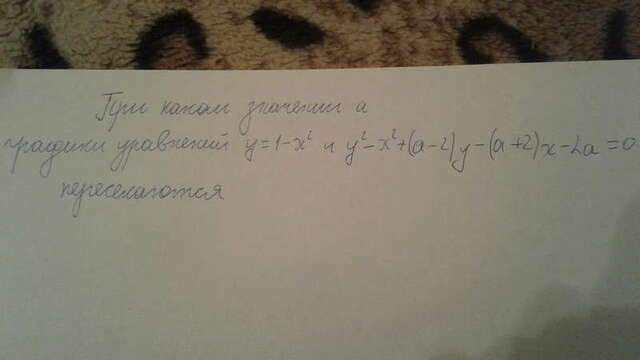 При каком значении a
графики уравнений y=1-x² и y²-x²+(a-2)y-(a+2)x-2a=0
пересекаются